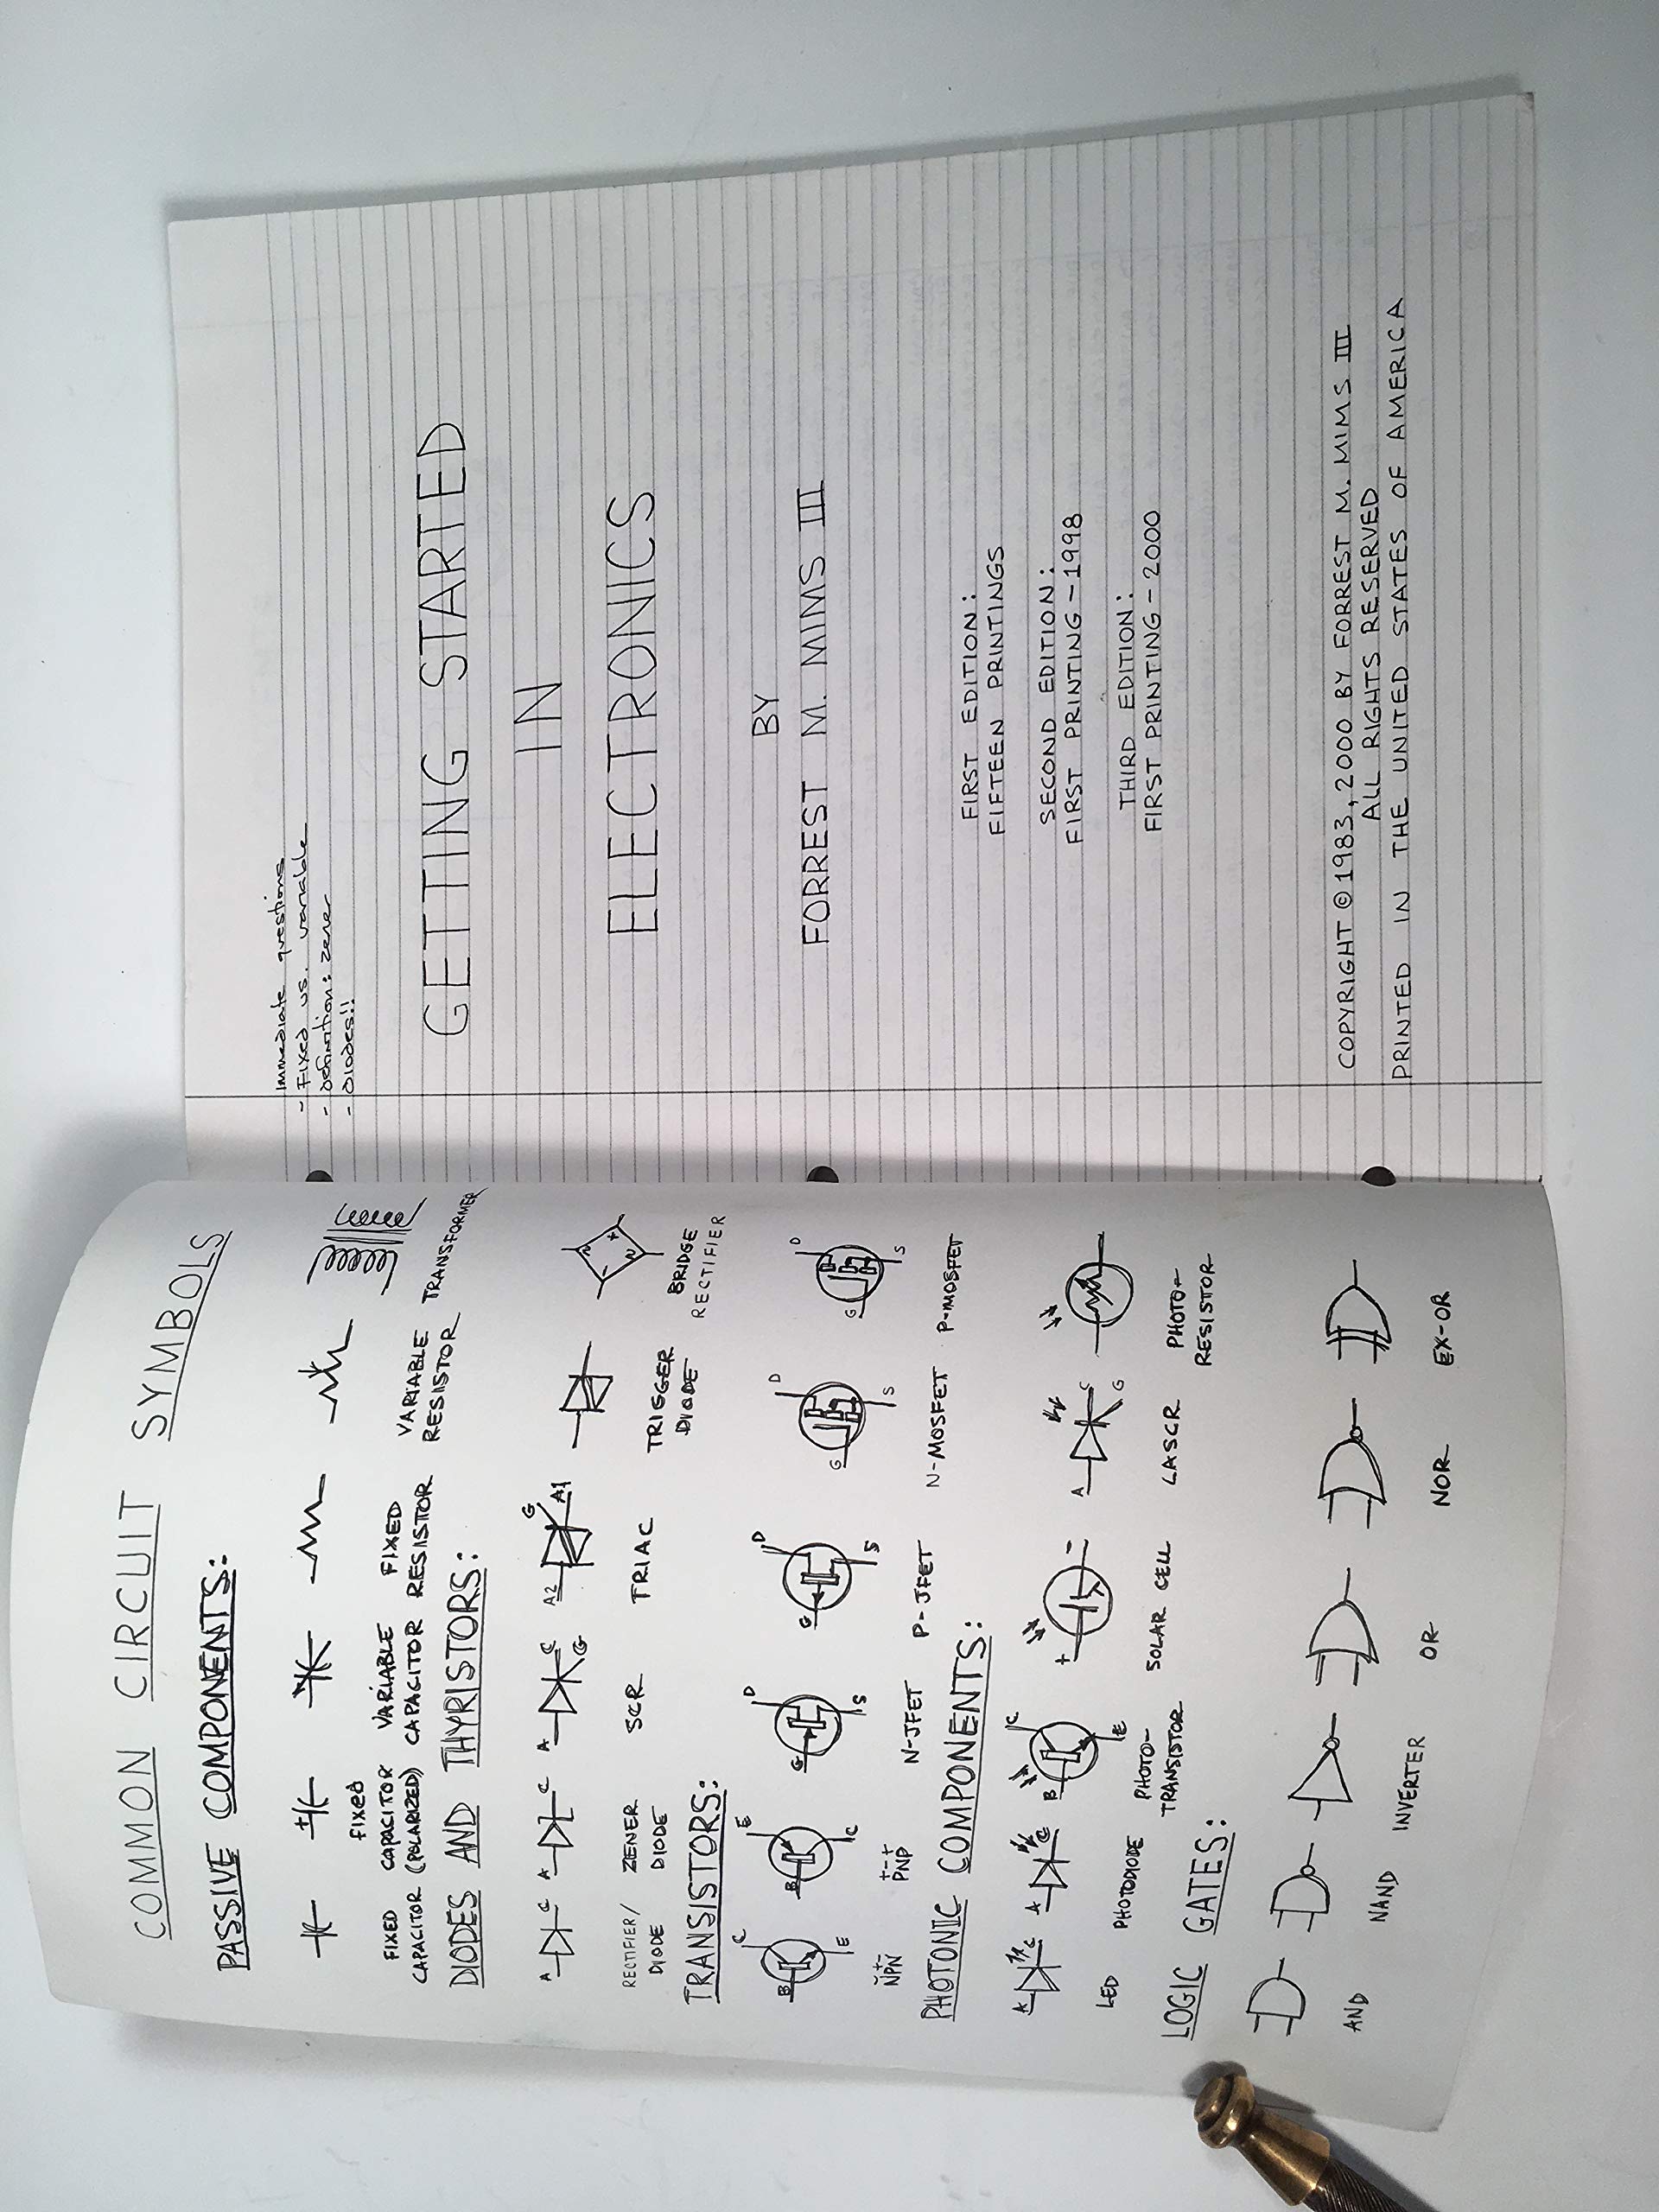 COMMON CIRCUIT SYMBOLS
PASSIVE COMPONENTS:
+
FIXED
FIXED CAPACITOR VARIABLE FIXED VARIABLE TRANSFORMER
CAPACITOR (POLARIZED) CAPACITOR RESISTOR RESISTOR
DIODES AND THYRISTORS:
A C A C A C G A2 G A1 - + ~ ~
RECTIFIER/ ZENER SCR TRIAC TRIGGER BRIDGE
DIODE DIODE DIODE RECTIFIER
TRANSISTORS:
C E D D D D
B B G G G G
E C S S S S
-+- +-+
NPN PNP N-JFET P-JFET N-MOSFET P-MOSFET
PHOTONIC COMPONENTS:
A C A C B C E + - A C G
LED PHOTODIODE PHOTO- SOLAR CELL LASCR PHOTO-
TRANSISTOR RESISTOR
LOGIC GATES:
AND NAND INVERTER OR NOR EX-OR
Immediate questions
- Fixed vs. variable
- Definition: zener
- DIODES!!
GETTING STARTED
IN
ELECTRONICS
BY
FORREST M. MIMS III
FIRST EDITION:
FIFTEEN PRINTINGS
SECOND EDITION:
FIRST PRINTING - 1998
THIRD EDITION:
FIRST PRINTING - 2000
COPYRIGHT © 1983, 2000 BY FORREST M. MIMS III
ALL RIGHTS RESERVED
PRINTED IN THE UNITED STATES OF AMERICA